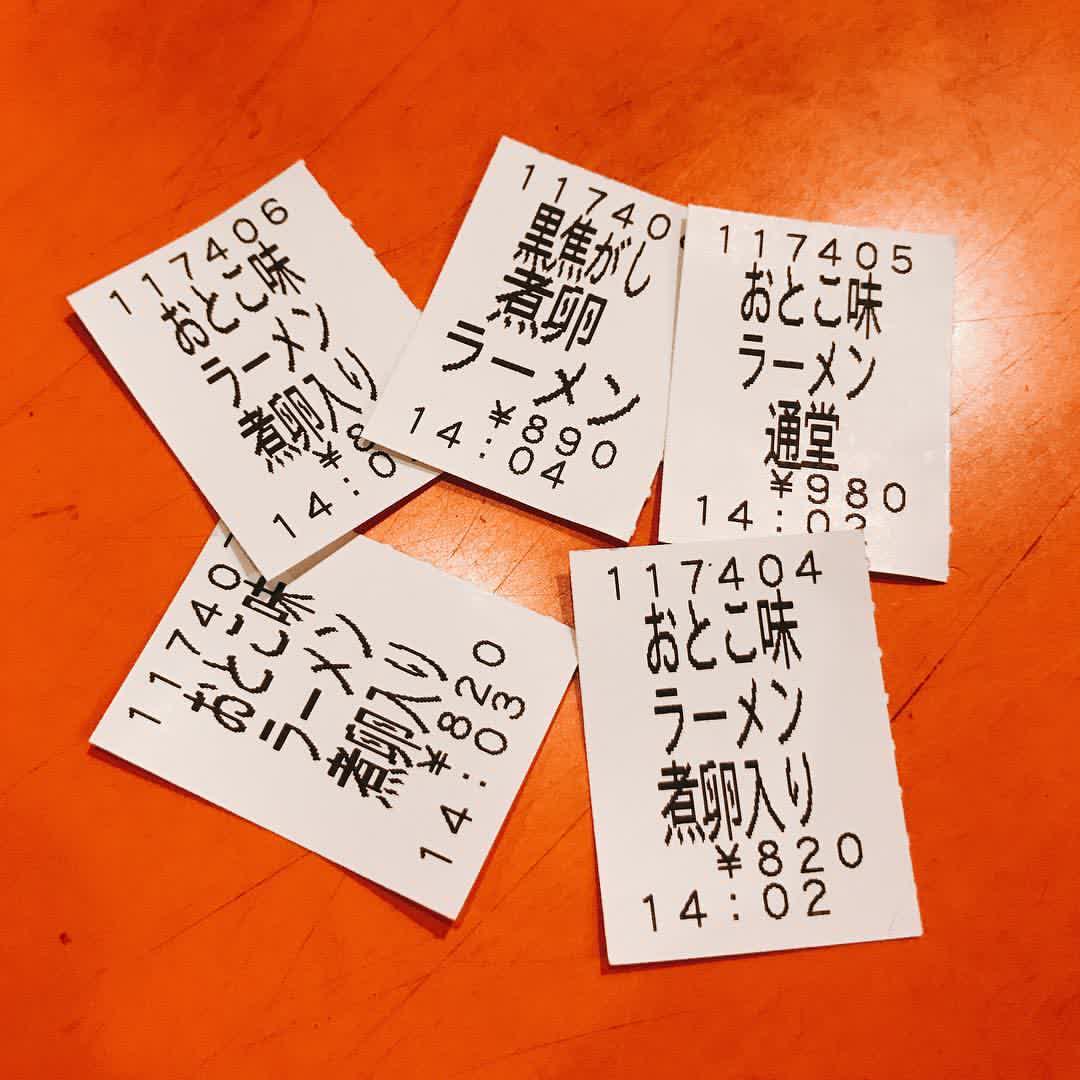 117406
おとこ味
ラーメン
煮卵入り
¥8
14:0
11740
黒焦がし
煮卵
ラーメン
¥890
14:04
117405
おとこ味
ラーメン
通堂
¥980
14:02
11740
おとこ味
ラーメン
煮卵入り
¥820
14:03
117404
おとこ味
ラーメン
煮卵入り
¥820
14:02